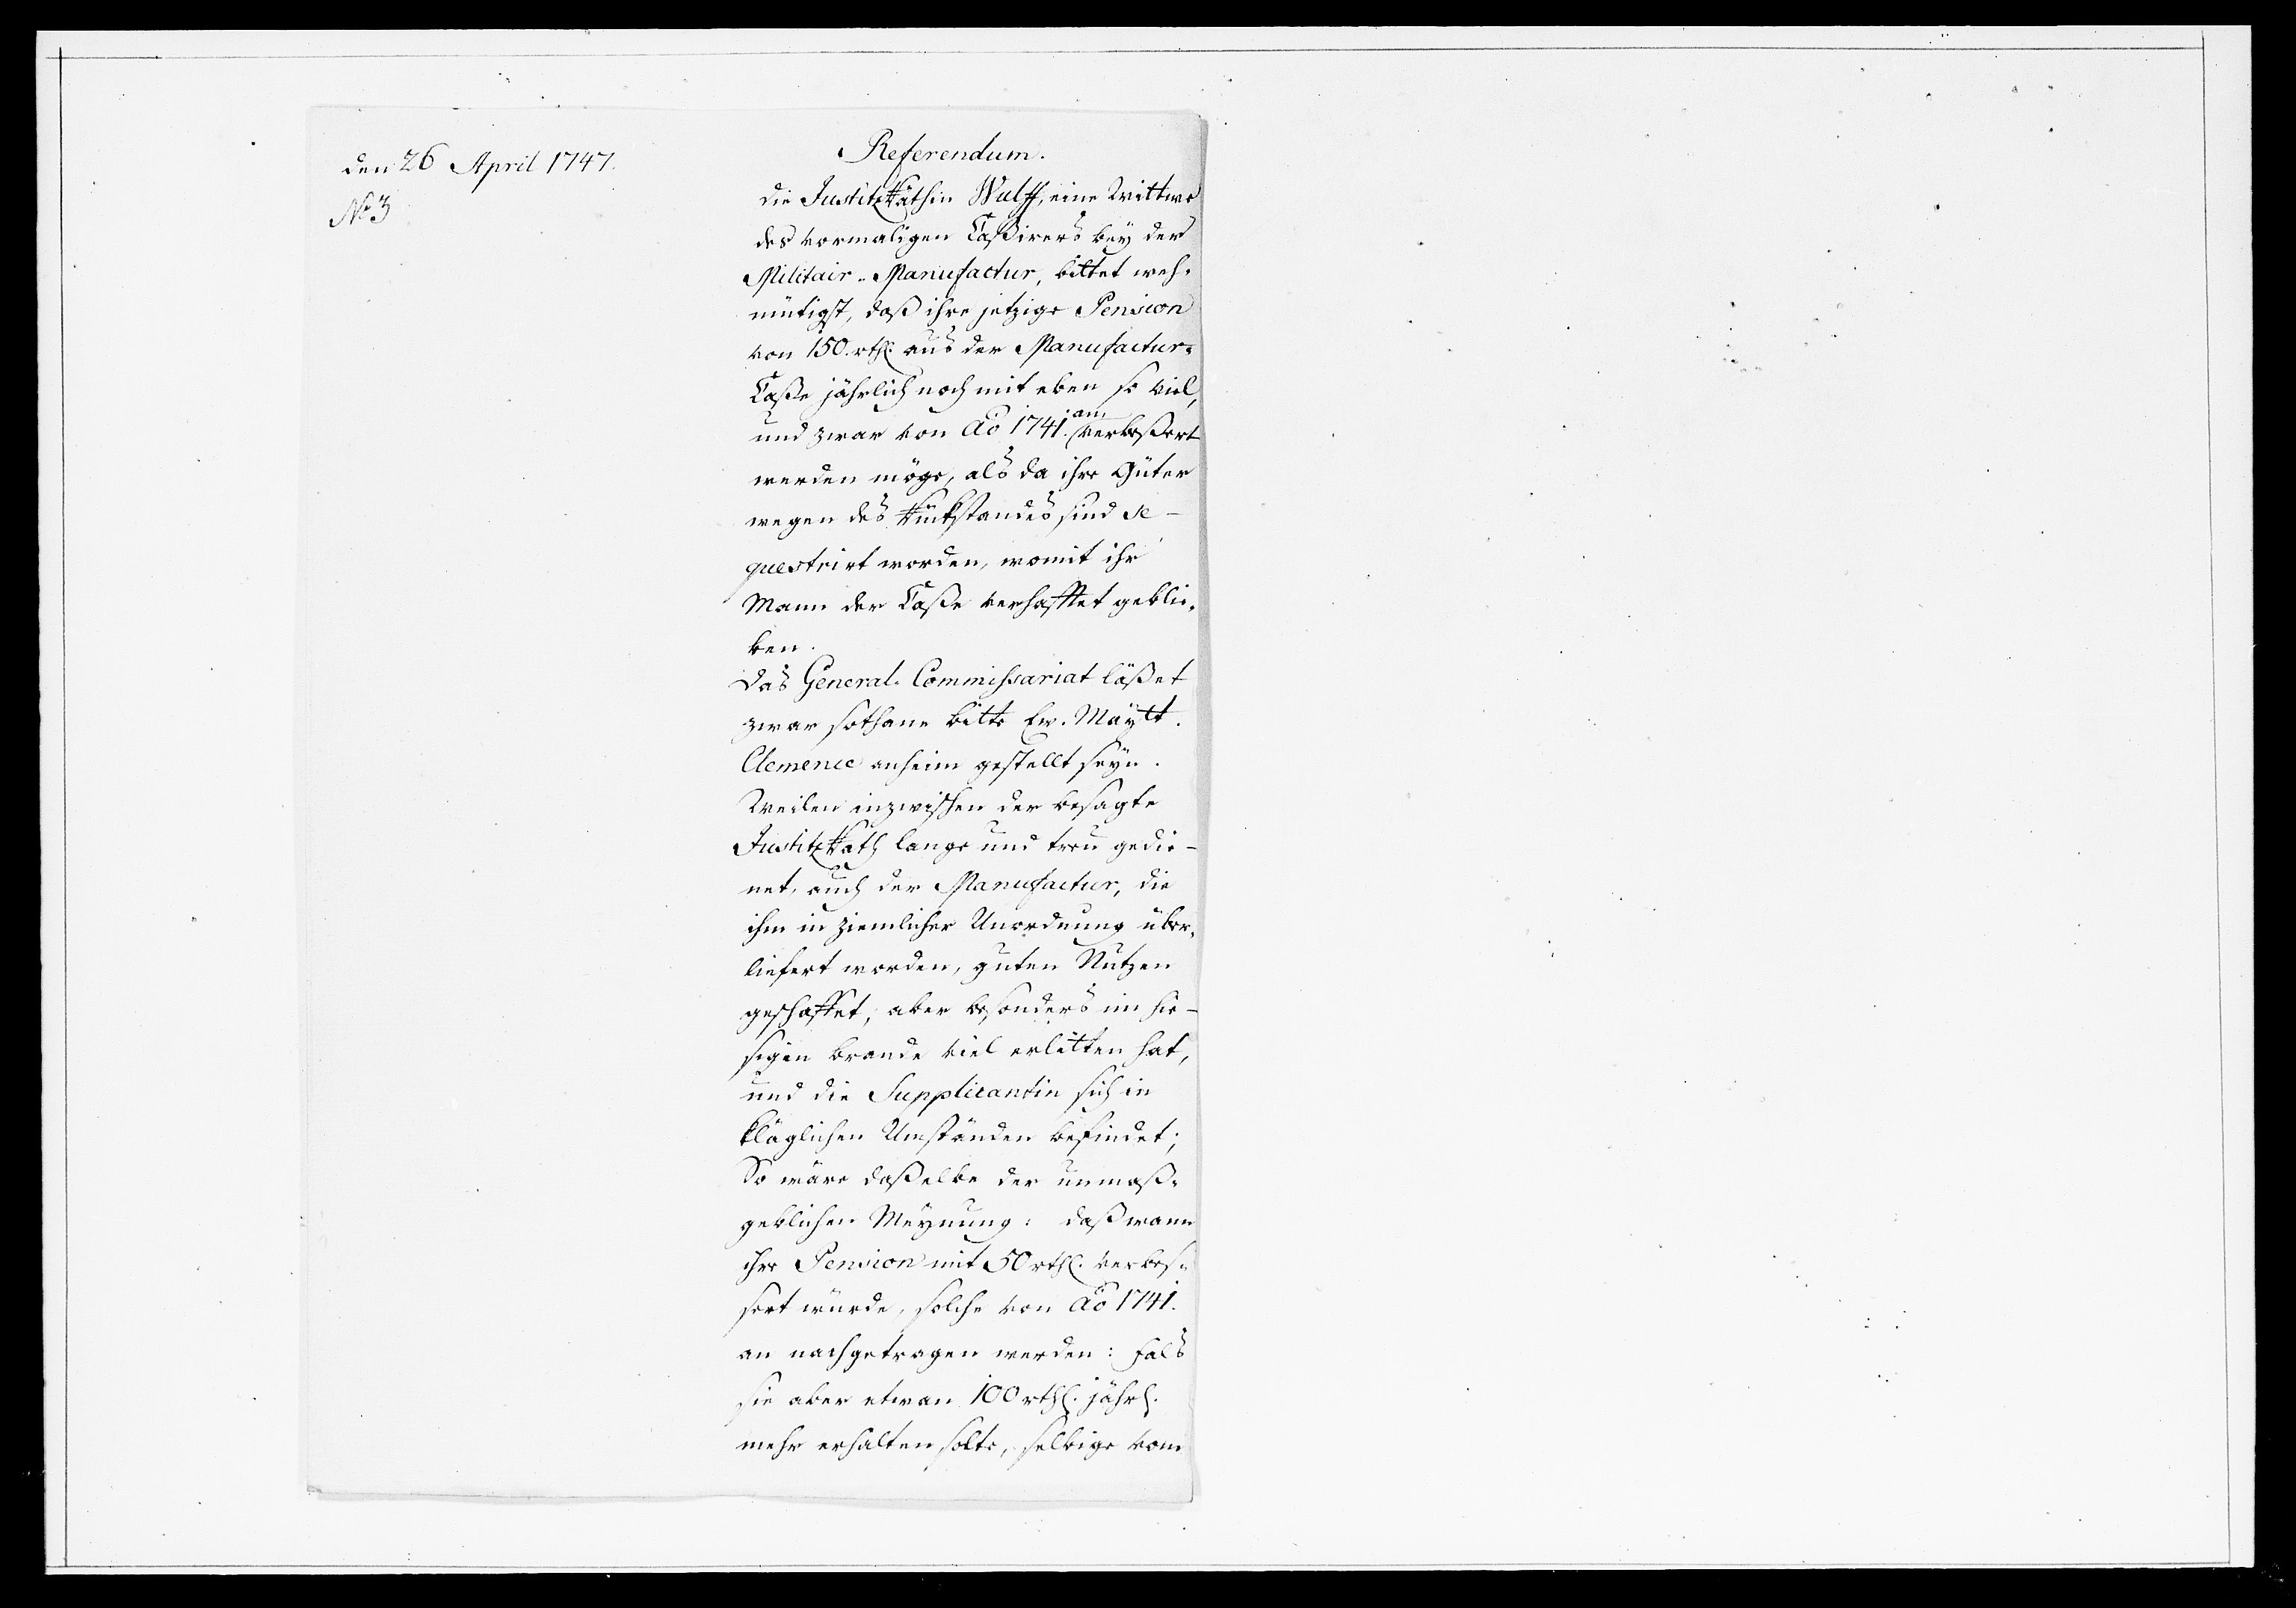 den 26 April 1747.
No 3
Referendum.
die JustitzRäthin Wulff, eine Wittwe
des vormaligen Caßirers bey der
Militair-Manufactur, bittet weh-
mütigst, daß ihre jetzige Pension
von 150. rthl. aus der Manufactur-
Caße jährlich noch mit eben so viel,
und zwar von Ao 1741. an verbeßert
werden möge, als da ihre Güter
wegen des Rückstandes sind se-
questrirt worden, womit ihr
Mann der Caße verhafftet geblie-
ben.
Das General-Commissariat läßet
zwar sothane bitte Ew. Maytt.
Clemence anheim gestellt seyn.
Weilen inzwischen der besagte
JustitzRath lange und treu gedie-
net, auch der Manufactur, die
ihm in ziemlicher Unordnung über-
liefert worden, guten Nutzen
geschaffet, aber besonders im hie-
sigen brande viel erlitten hat,
und die Supplicantin sich in
kläglichen Umständen befindet;
So wäre daßelbe der unmaß-
geblichen Meynung: daß wann
ihre Pension mit 50 rthl. verbes-
sert würde, solche von Ao 1741.
an nachgetragen werden: Fals
sie aber etwan 100 rthl. jährl.
mehr erhalten solte, selbige vom